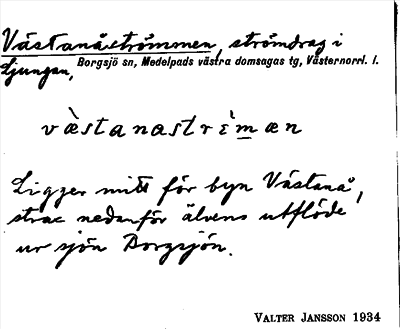 Västanåströmmen, strömdrag i
Ljungan, Borgsjö sn, Medelpads västra domsagas tg, Västernorrl. l.
væ̀stanastrèmæn
Ligger mitt för byn Västanå,
strax nedanför älvens utflöde
ur sjön Borgsjön.
VALTER JANSSON 1934